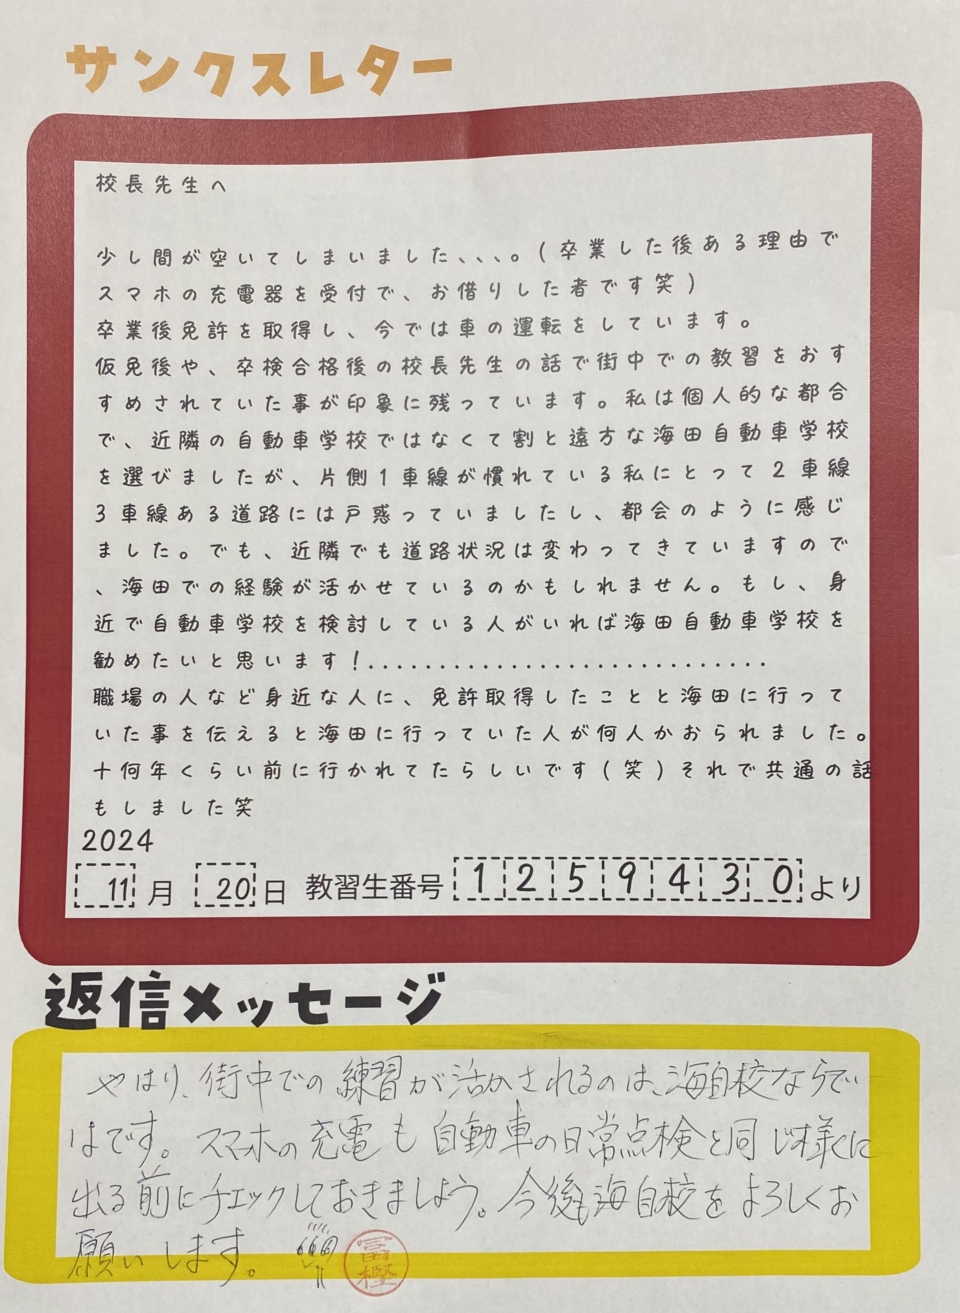 サンクスレター
校長先生へ
少し間が空いてしまいました、、、。(卒業した後ある理由で
スマホの充電器を受付で、お借りした者です笑)
卒業後免許を取得し、今では車の運転をしています。
仮免後や、卒検合格後の校長先生の話で街中での教習をおす
すめされていた事が印象に残っています。私は個人的な都合
で、近隣の自動車学校ではなくて割と遠方な海田自動車学校
を選びましたが、片側1車線が慣れている私にとって2車線
3車線ある道路には戸惑っていましたし、都会のように感じ
ました。でも、近隣でも道路状況は変わってきていますので
、海田での経験が活かせているのかもしれません。もし、身
近で自動車学校を検討している人がいれば海田自動車学校を
勧めたいと思います!............................
職場の人など身近な人に、免許取得したことと海田に行って
いた事を伝えると海田に行っていた人が何人かおられました。
十何年くらい前に行かれてたらしいです(笑)それで共通の話
もしました笑
2024
11月 20日 教習生番号 1259430より
返信メッセージ
やはり、街中での練習が活かされるのは、海自校ならでい
はです。スマホの充電も自動車の日常点検と同じ様に
出る前にチェックしておきましょう。今後も海自校をよろしくお
願いします。
冨樫